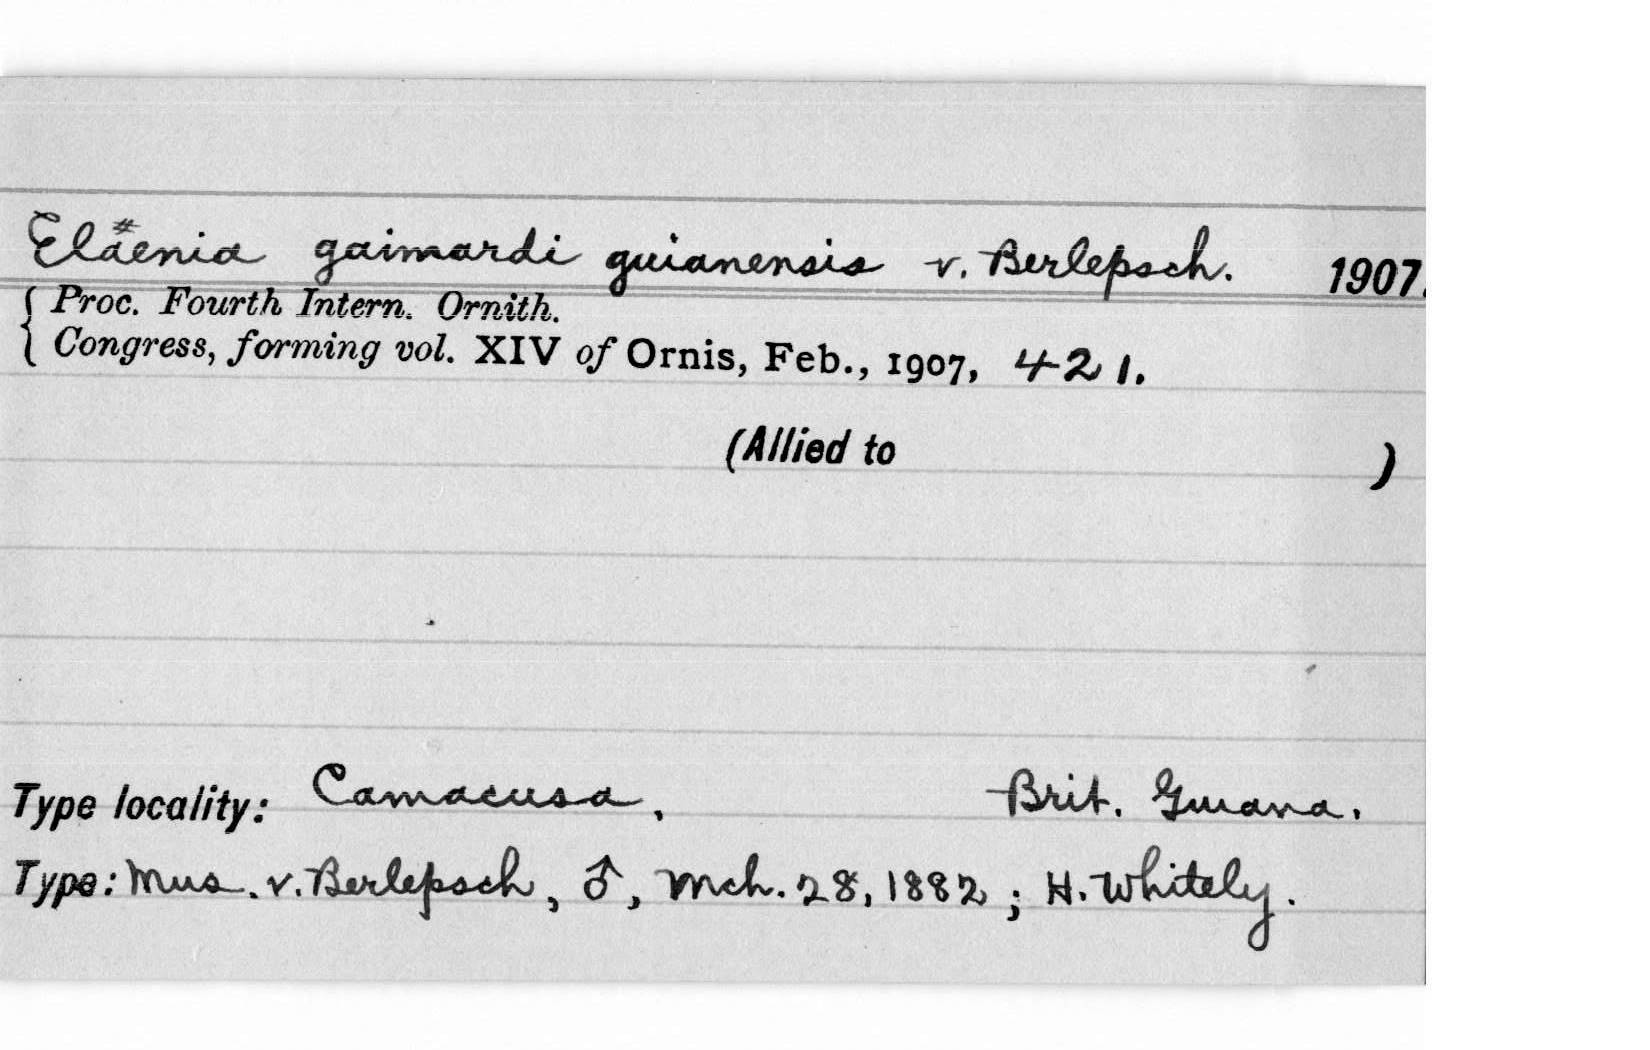 Elaenia gaimardi guianensis v. Berlepsch. 1907.
{ Proc. Fourth Intern. Ornith.
Congress, forming vol. XIV of Ornis, Feb., 1907, 421.
(Allied to )
Type locality: Camacusa, Brit. Guiana.
Type: Mus. v. Berlepsch, ♂, Mch. 28, 1882; H. Whitely.